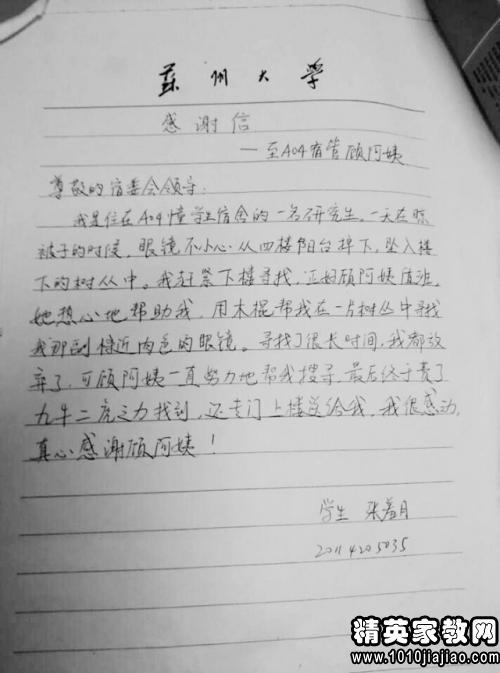 苏州大学
感谢信
—至A04宿管顾阿姨
尊敬的宿委会领导:
我是住在A04幢学生宿舍的一名研究生。一天在晾
被子的时候,眼镜不小心从四楼阳台掉下,坠入楼
下的树丛中。我赶紧下楼寻找,正如顾阿姨值班,
她热心地帮助我,用木棍帮我在一片树丛中寻找
我那副接近肉色的眼镜。寻找了很长时间,我都放
弃了,可顾阿姨一直努力地帮我搜寻,最后终于费了
九牛二虎之力找到,还专门上楼送给我,我很感动,
真心感谢顾阿姨!
学生 张 月
20114205035
精英家教网
www.1010jiajiao.com